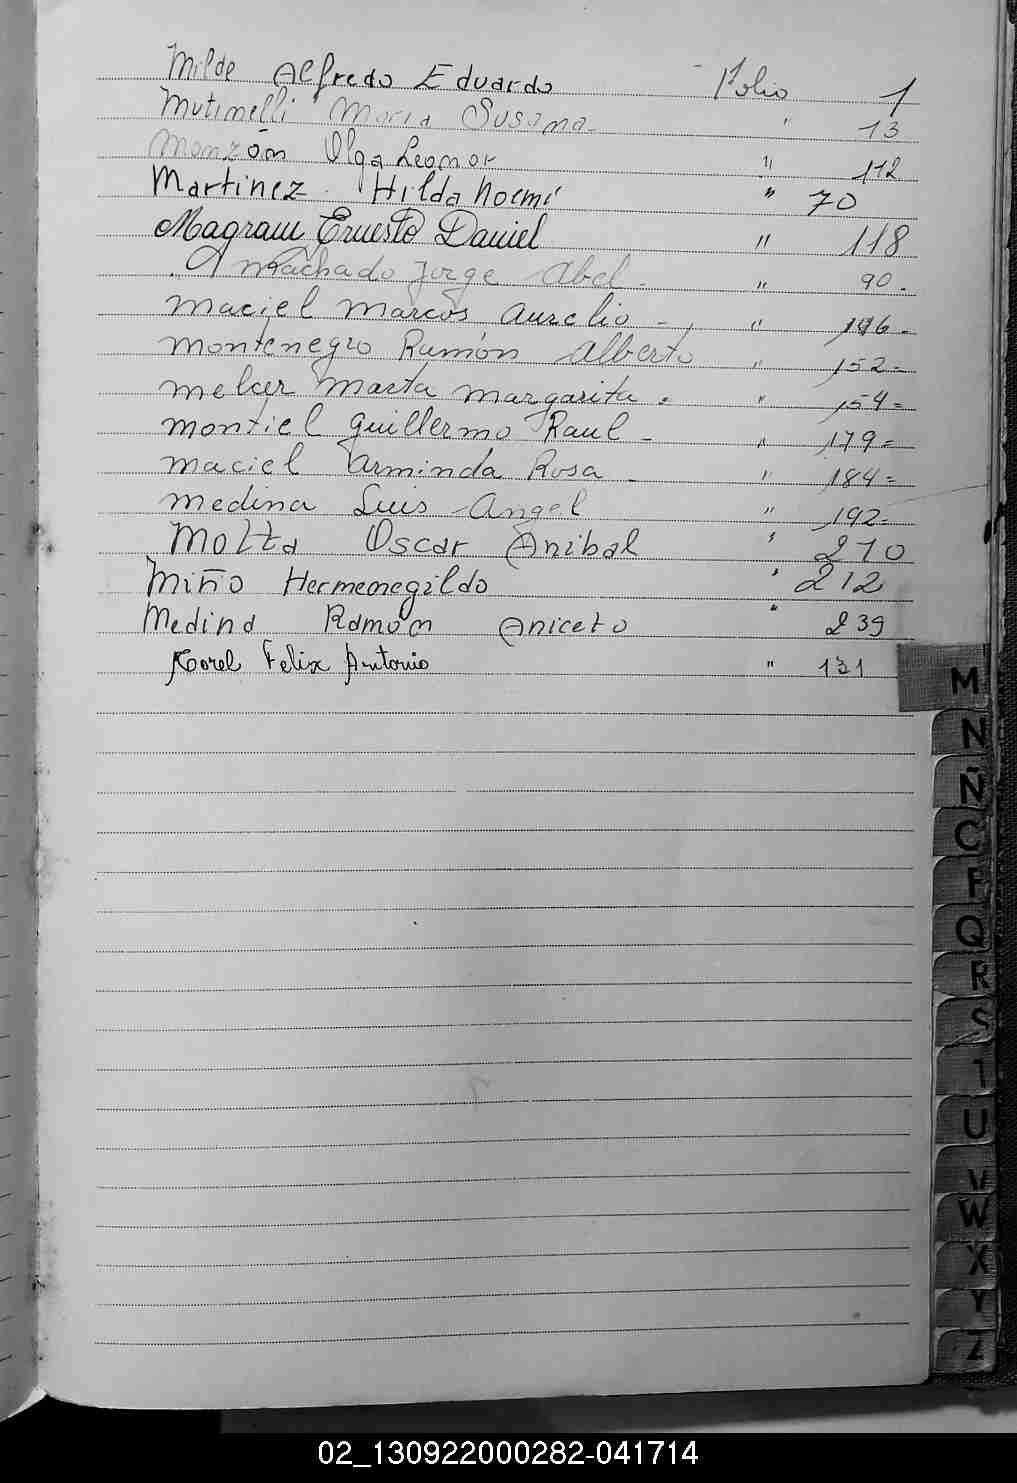 Milde Alfredo Eduardo - Folio 1
Mutinelli Maria Susana - " 13
Monzón Olga Leonor " 112
Martinez Hilda Noemí " 70
Magram Ernesto Daniel " 118
Machado Jorge Abel - " 90.
Maciel Marcos Aurelio - " -
Montenegro Ramón Alberto " 152=
Melcer Marta Margarita. " 154=
Montiel Guillermo Raul - " 179=
Maciel Arminda Rosa - " 184=
Medina Luis Angel " 192=
Motta Oscar Anibal " 210
Miño Hermenegildo " 212
Medina Ramón Aniceto " 239
Felix Antonio " 131
M
N
Ñ
O
P
Q
R
S
T
U
V
W
X
Y
Z
02_130922000282-041714